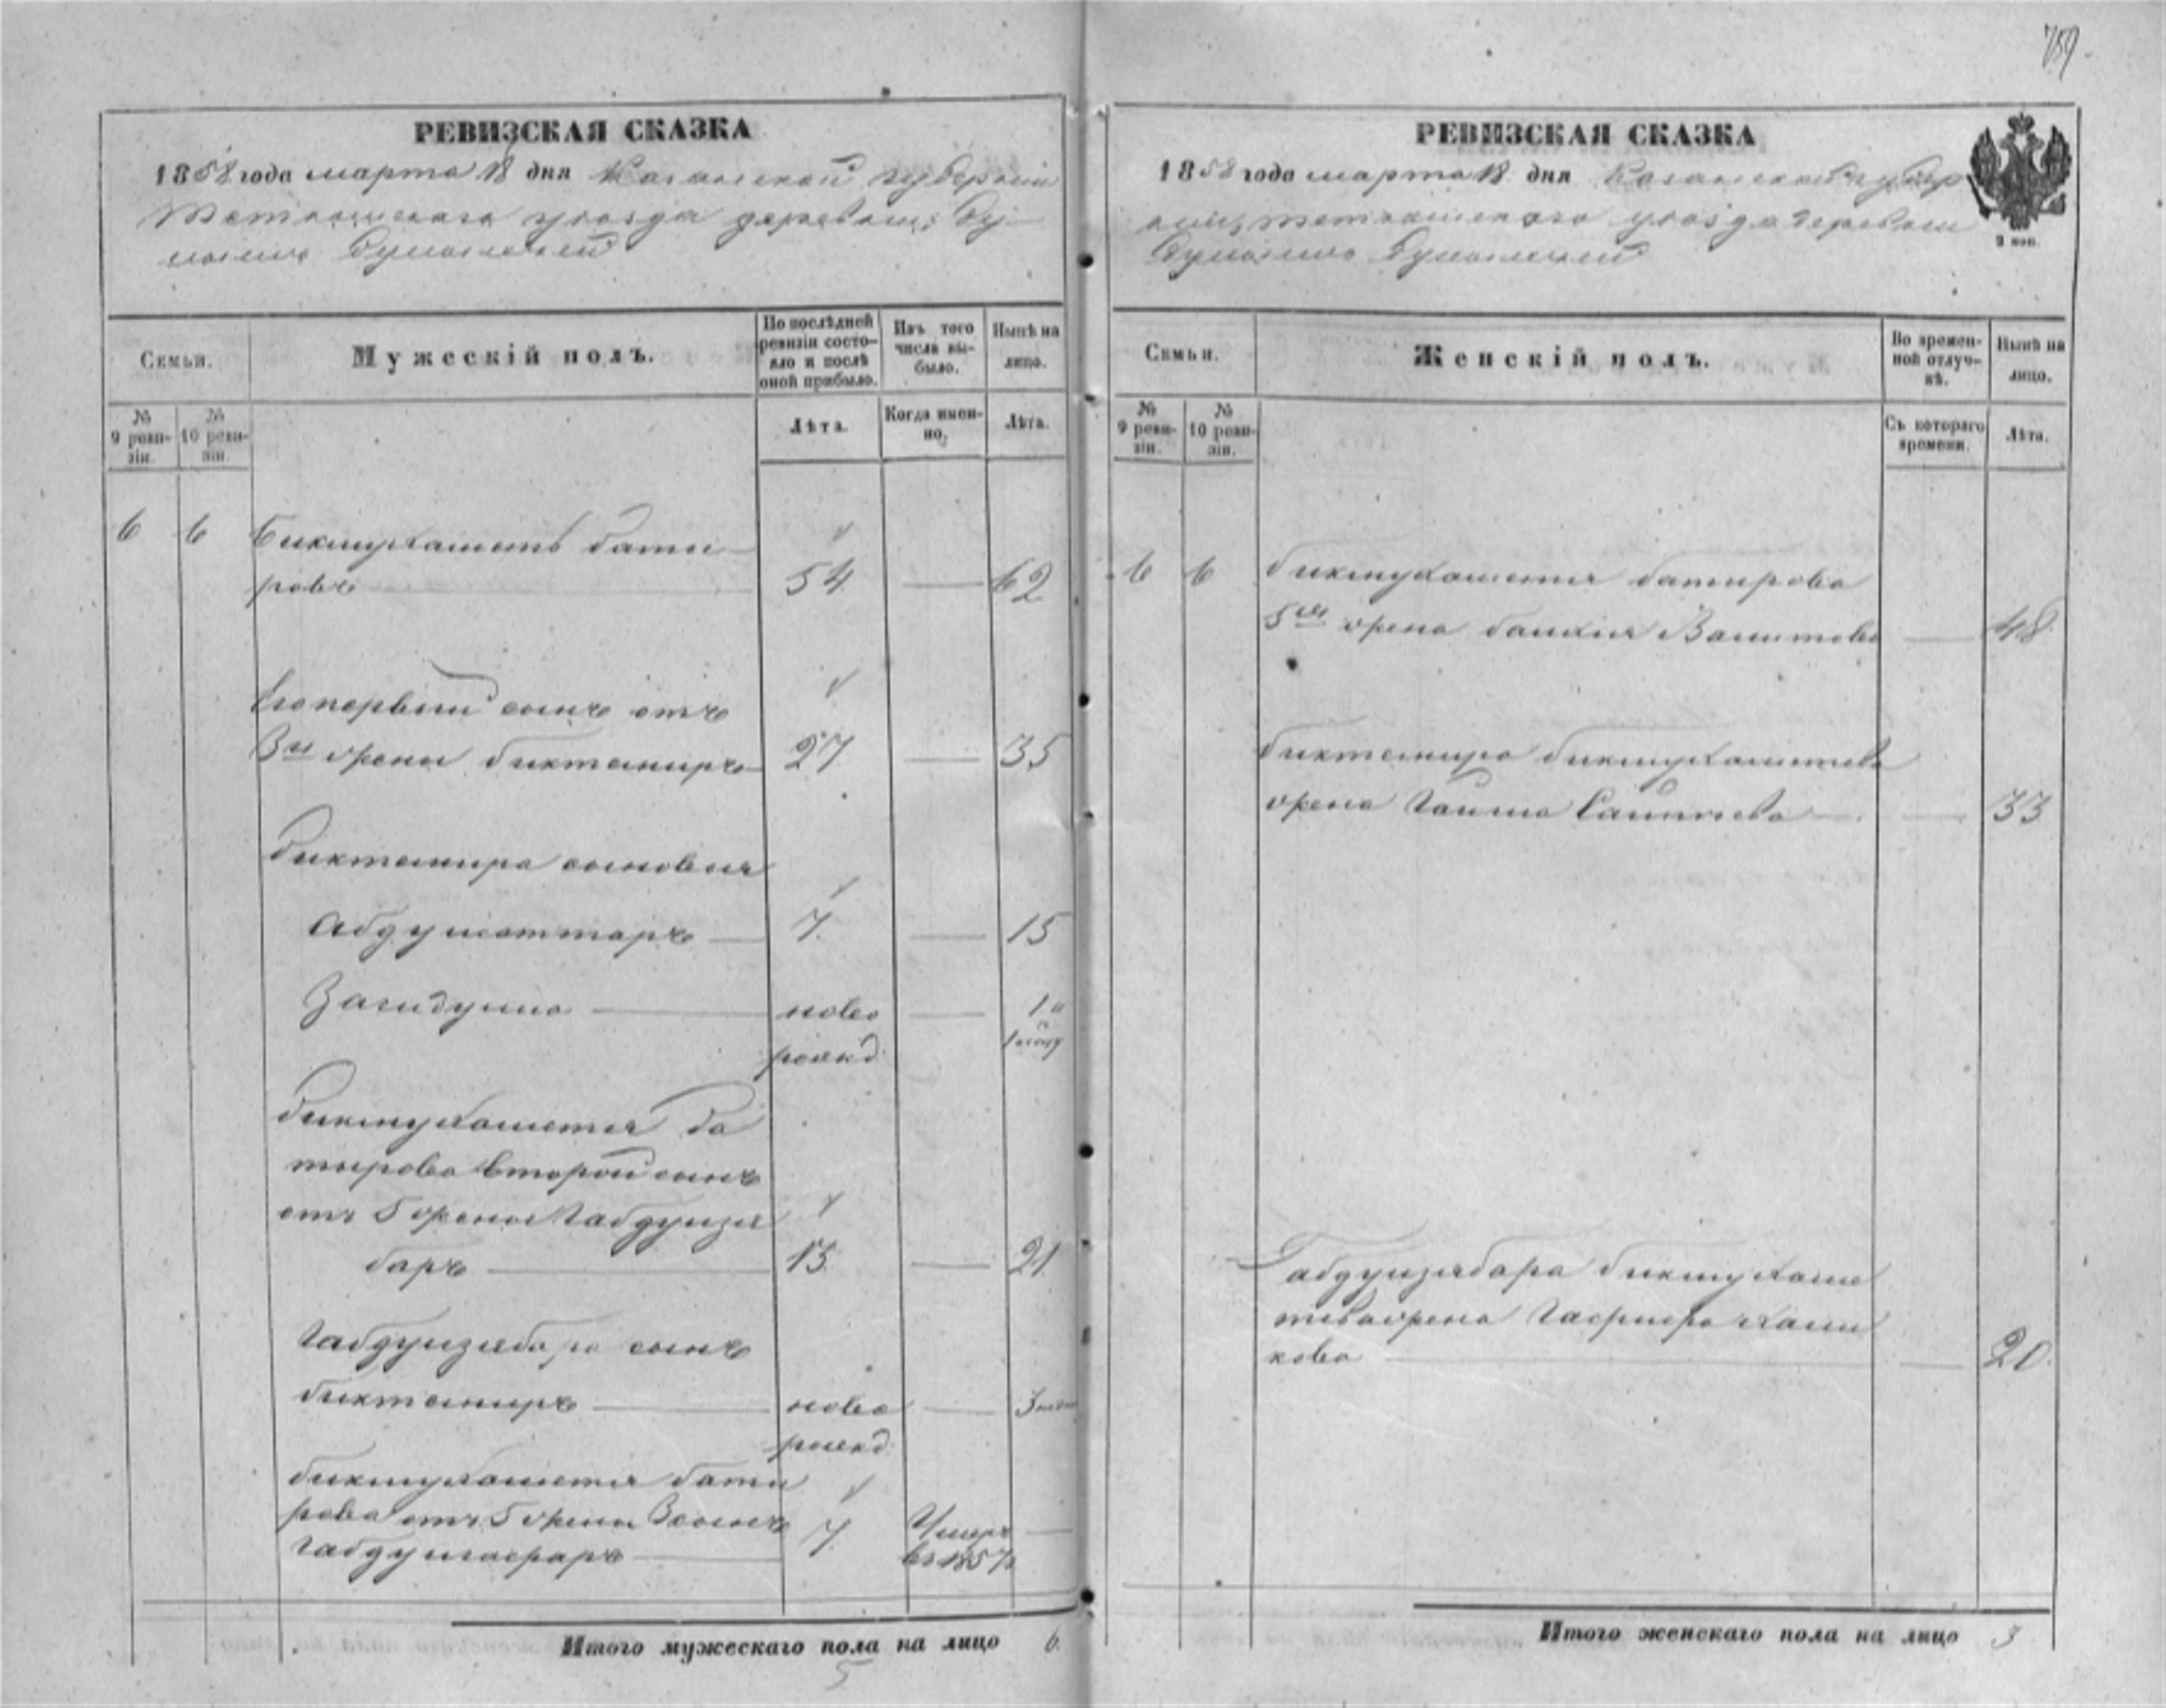 759
РЕВИЗСКАЯ СКАЗКА
1858 года марта 18 дня Казанской губернии
Тетюшскаго уезда деревни
6 6 Бикмухаметь бати-
ровъ 54 — 62
Его первый сынъ отъ
3й жены биктемиръ 27 — 35
биктемира сыновья
Абдулсаттаръ — 7 — 15
Загидулла — ново — 1 и
рожд
бикмухаметя ба
тырова второй сынъ
отъ 5 жены Габдулзя
баръ — 13 — 21
Габдулзябара сынъ
биктемиръ — ново — 3
рожд
бикмухаметя бати
рова отъ 5 жены 3 сынъ
Габдулгафаръ — 7 Умеръ —
въ 1857
Итого мужескаго пола на лицо 6.
5
Семьи.
Мужескій полъ.
По послѣдней ревизіи состояло и послѣ оной прибыло.
Изъ того числа выбыло.
Нынѣ на лицо.
№ 9 ревизіи.
№ 10 ревизіи.
Лѣта.
Когда именно.
Лѣта.
РЕВИЗСКАЯ СКАЗКА
1858 года марта 18 дня Казанской губер
нии, Тетюшскаго уезда деревни
2 коп.
Семьи.
Женскій полъ.
Во временной отлучкѣ.
Нынѣ на лицо.
№ 9 ревизіи.
№ 10 ревизіи.
Съ котораго времени.
Лѣта.
6 6 бикмухаметя батирова
5я жена Валитова — 48
биктемира бикмухаметева
жена — 33
Габдулзябара бикмухаме
тева жена
кова — 20.
Итого женскаго пола на лицо 3